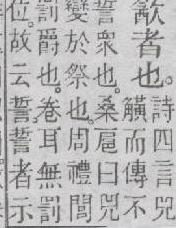 歠者也。詩四言兕
觵而傳不
誓衆也。桑扈曰兕
變於祭也。周禮閭
罰爵也。卷耳無罰
位。故云誓誓者示